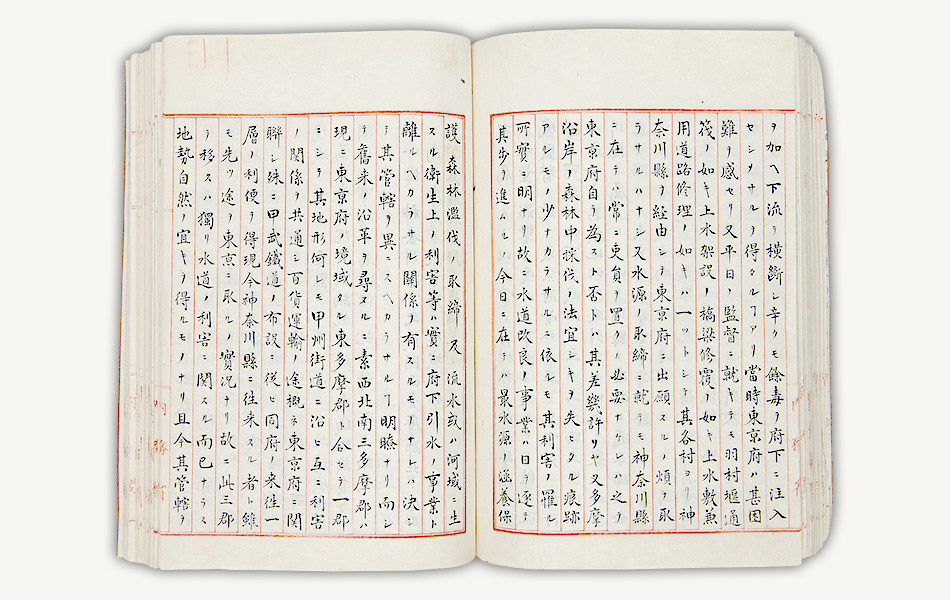 ヲ加ヘ下流ヲ横斷シ辛クモ餘毒ヲ府下ニ注入
セシメサルヲ得タルヿアリ當時東京府ハ甚困
難ヲ感セリ又平日ノ監督ニ就キテモ羽村堰通
筏ノ如キ上水架設ノ橋梁修覆ノ如キ上水敷兼
用道路修理ノ如キハ一ツトシテ其各村ヨリ神
奈川縣ヲ経由シ東京府ニ出願スルノ煩ヲ取
ラサルハナシ又水源ノ取締ニ就テモ神奈川縣
ニ在テハ常ニ吏員ヲ置クノ必要ナケレハ之ヲ
東京府自ラ為スト否トハ其差幾許リヤ又多摩
沿岸ノ森林中採伐ノ法宜シキヲ失ヒタル痕跡
アルモノ少ナカラサルニ依ルモ其利害ノ罹ル
所實ニ明ナリ故ニ水道改良ノ事業ハ日ヲ逐テ
其歩ヲ進ムルノ今日ニ在テハ最水源ノ涵養保
護森林濫伐ノ取締又流水或ハ河域ニ生
スル衛生上ノ利害等ハ實ニ府下引水ノ事業ト
離ルヘカラサル關係ヲ有スルモノナレハ決シ
テ其管轄ヲ異ニスヘカラサルヿ明瞭ナリ而シ
テ舊来ノ沿革ヲ尋ヌルニ素西北南三多摩郡ハ
現ニ東京府ノ境域タル東多摩郡ト合セテ一郡
ニシテ其地形何レモ甲州街道ニ沿ヒ互ニ利害
ノ関係ヲ共通シ百貨運輸ノ途概ネ東京府ニ関
聯シ殊ニ甲武鐵道ノ布設ニ從ヒ同府ノ来徃一
層ノ利便ヲ得現今神奈川縣ニ徃来スル者ト雖
モ先ツ途ヲ東京ニ取ルノ實況ナリ故ニ此三郡
ヲ移スハ獨リ水道ノ利害ニ関スル而已ナラス
地勢自然ノ宜キヲ得ルモノナリ且今其管轄ヲ